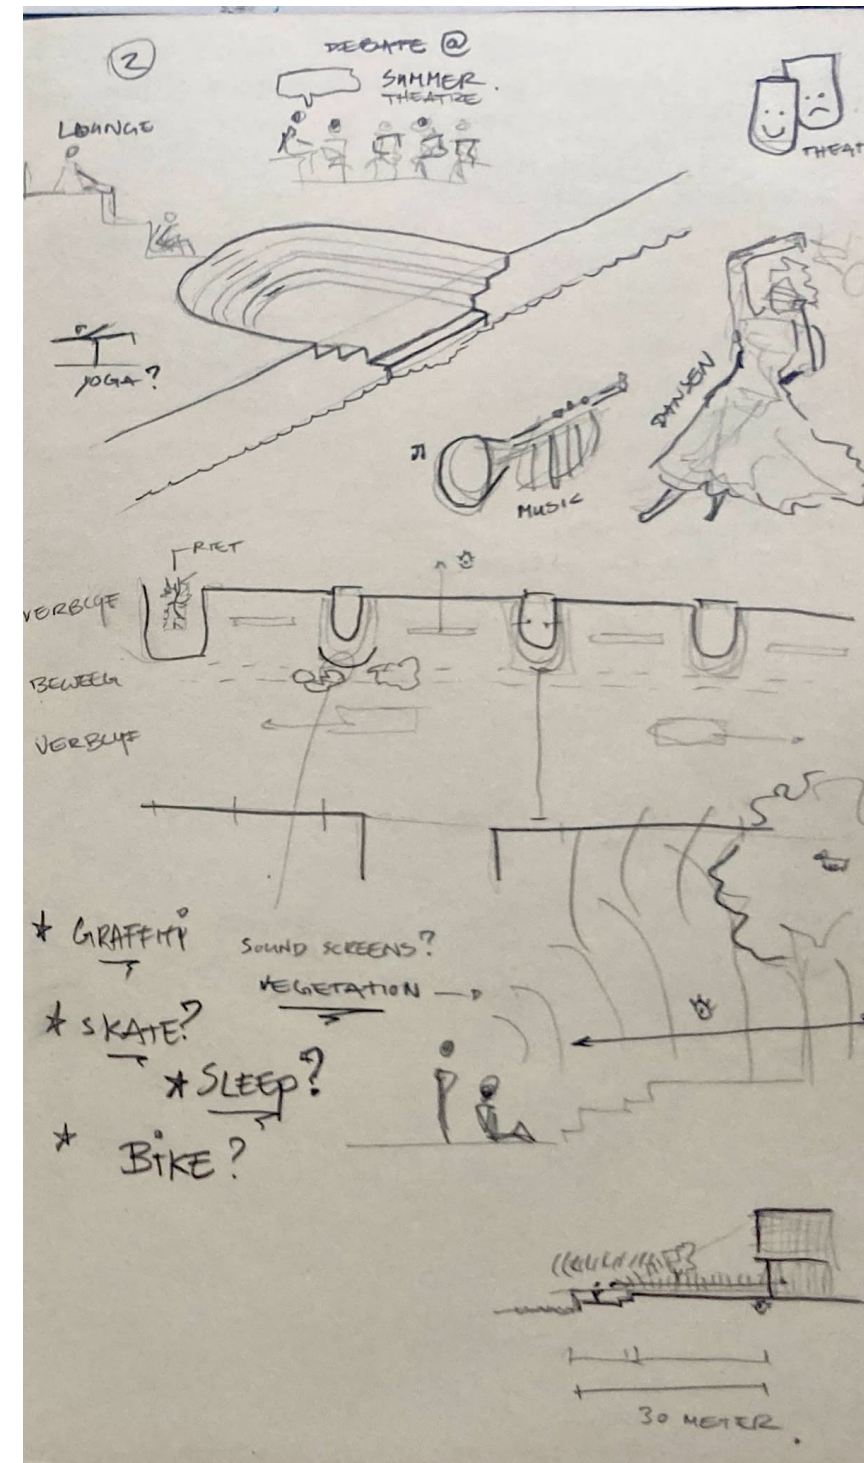 2
DEBATE @
SUMMER.
THEATRE
LOUNGE
THEAT
YOGA?
DANSEN
MUSIC
RIET
VERBLIJF
BEWEEG
VERBLIJF
* GRAFFITI
SOUND SCREENS?
VEGETATION
* SKATE?
* SLEEP?
* BIKE?
30 METER.